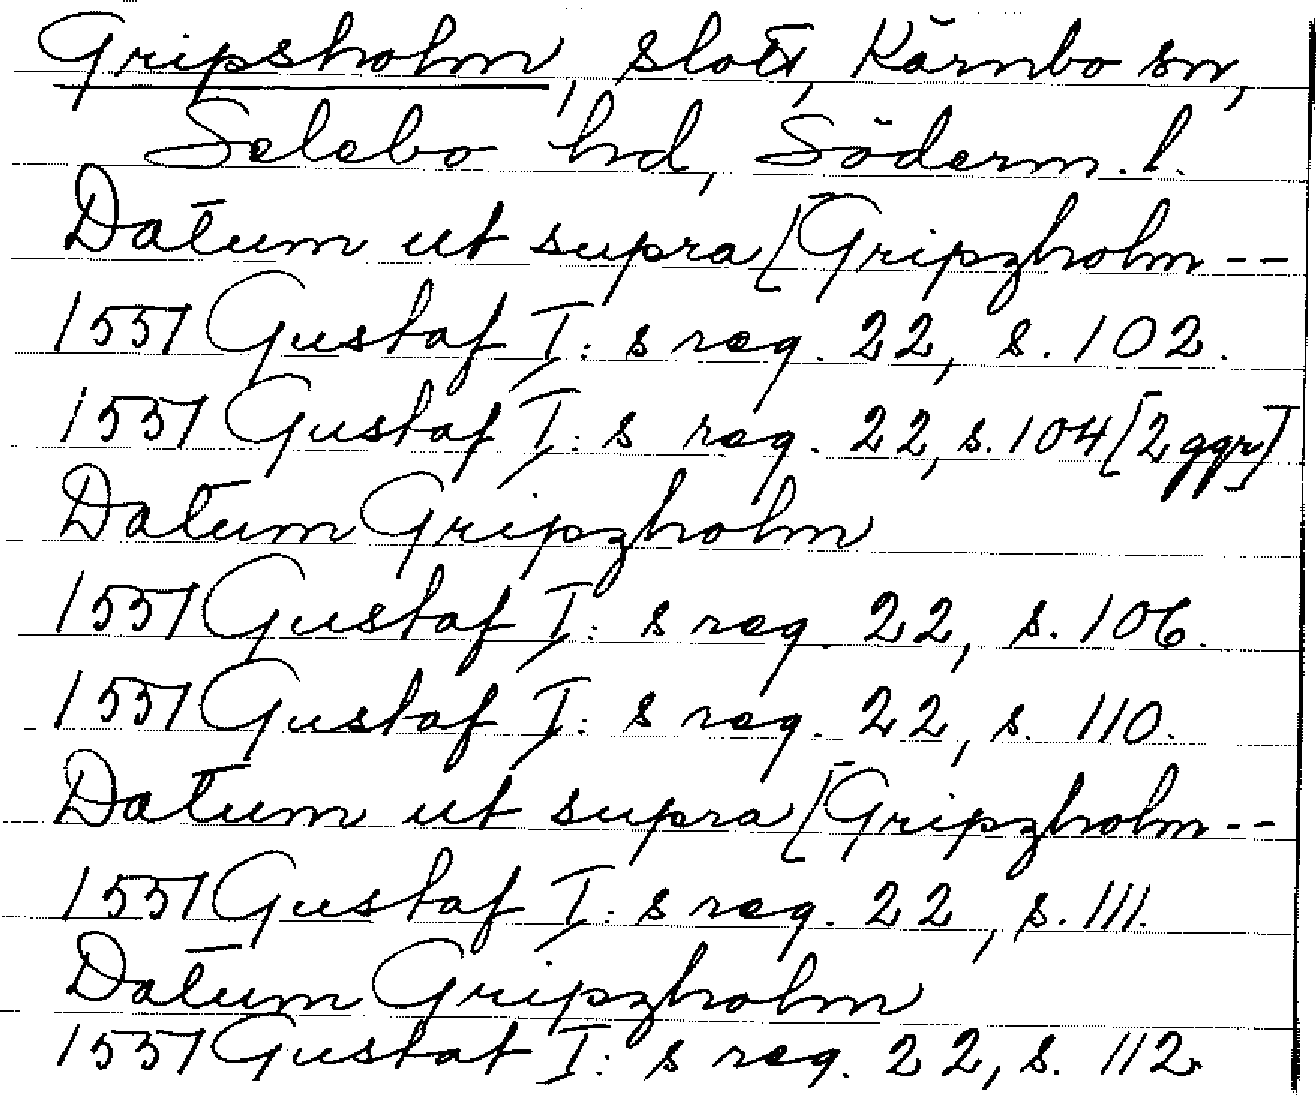 Gripsholm, slott, Kärnbo sn,
Selebo hd, Söderm. l.
Datum ut supra [Gripzholm --
1551 Gustaf I: s reg. 22, s. 102.
1551 Gustaf I: s reg. 22, s. 104 [2 ggr]
Datum Gripzholm
1551 Gustaf I: s reg. 22, s. 106.
1551 Gustaf I: s reg. 22, s. 110.
Datum ut supra [Gripzholm --
1551 Gustaf I: s reg. 22, s. 111.
Datum Gripzholm
1551 Gustaf I: s reg. 22, s. 112.